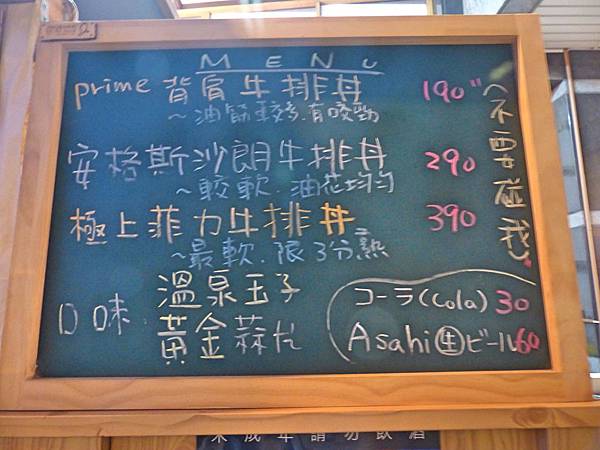 MENU
prime 背肩牛排丼 190
~油筋較多.有咬勁
安格斯沙朗牛排丼 290
~較軟.油花均勻
極上菲力牛排丼 390
~最軟.限3分熱
口味:溫泉玉子
黃金蒜片
コーラ(Cola) 30
Asahi生ビール 60
(不要碰我)
未成年請勿飲酒